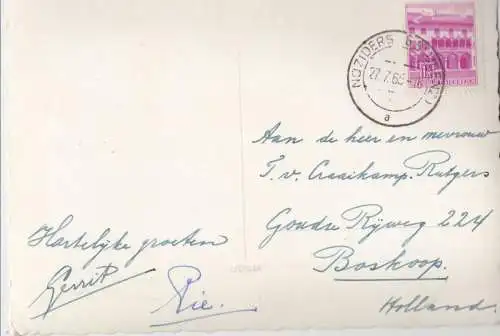 NOZIDERS
27.7.65
a
Aan de heer en mevrouw
T. v. Craaikamp-Rutgers
Goudse Rijweg 224
Boskoop.
Holland.
Hartelijke groeten
Gerrit
Rie.